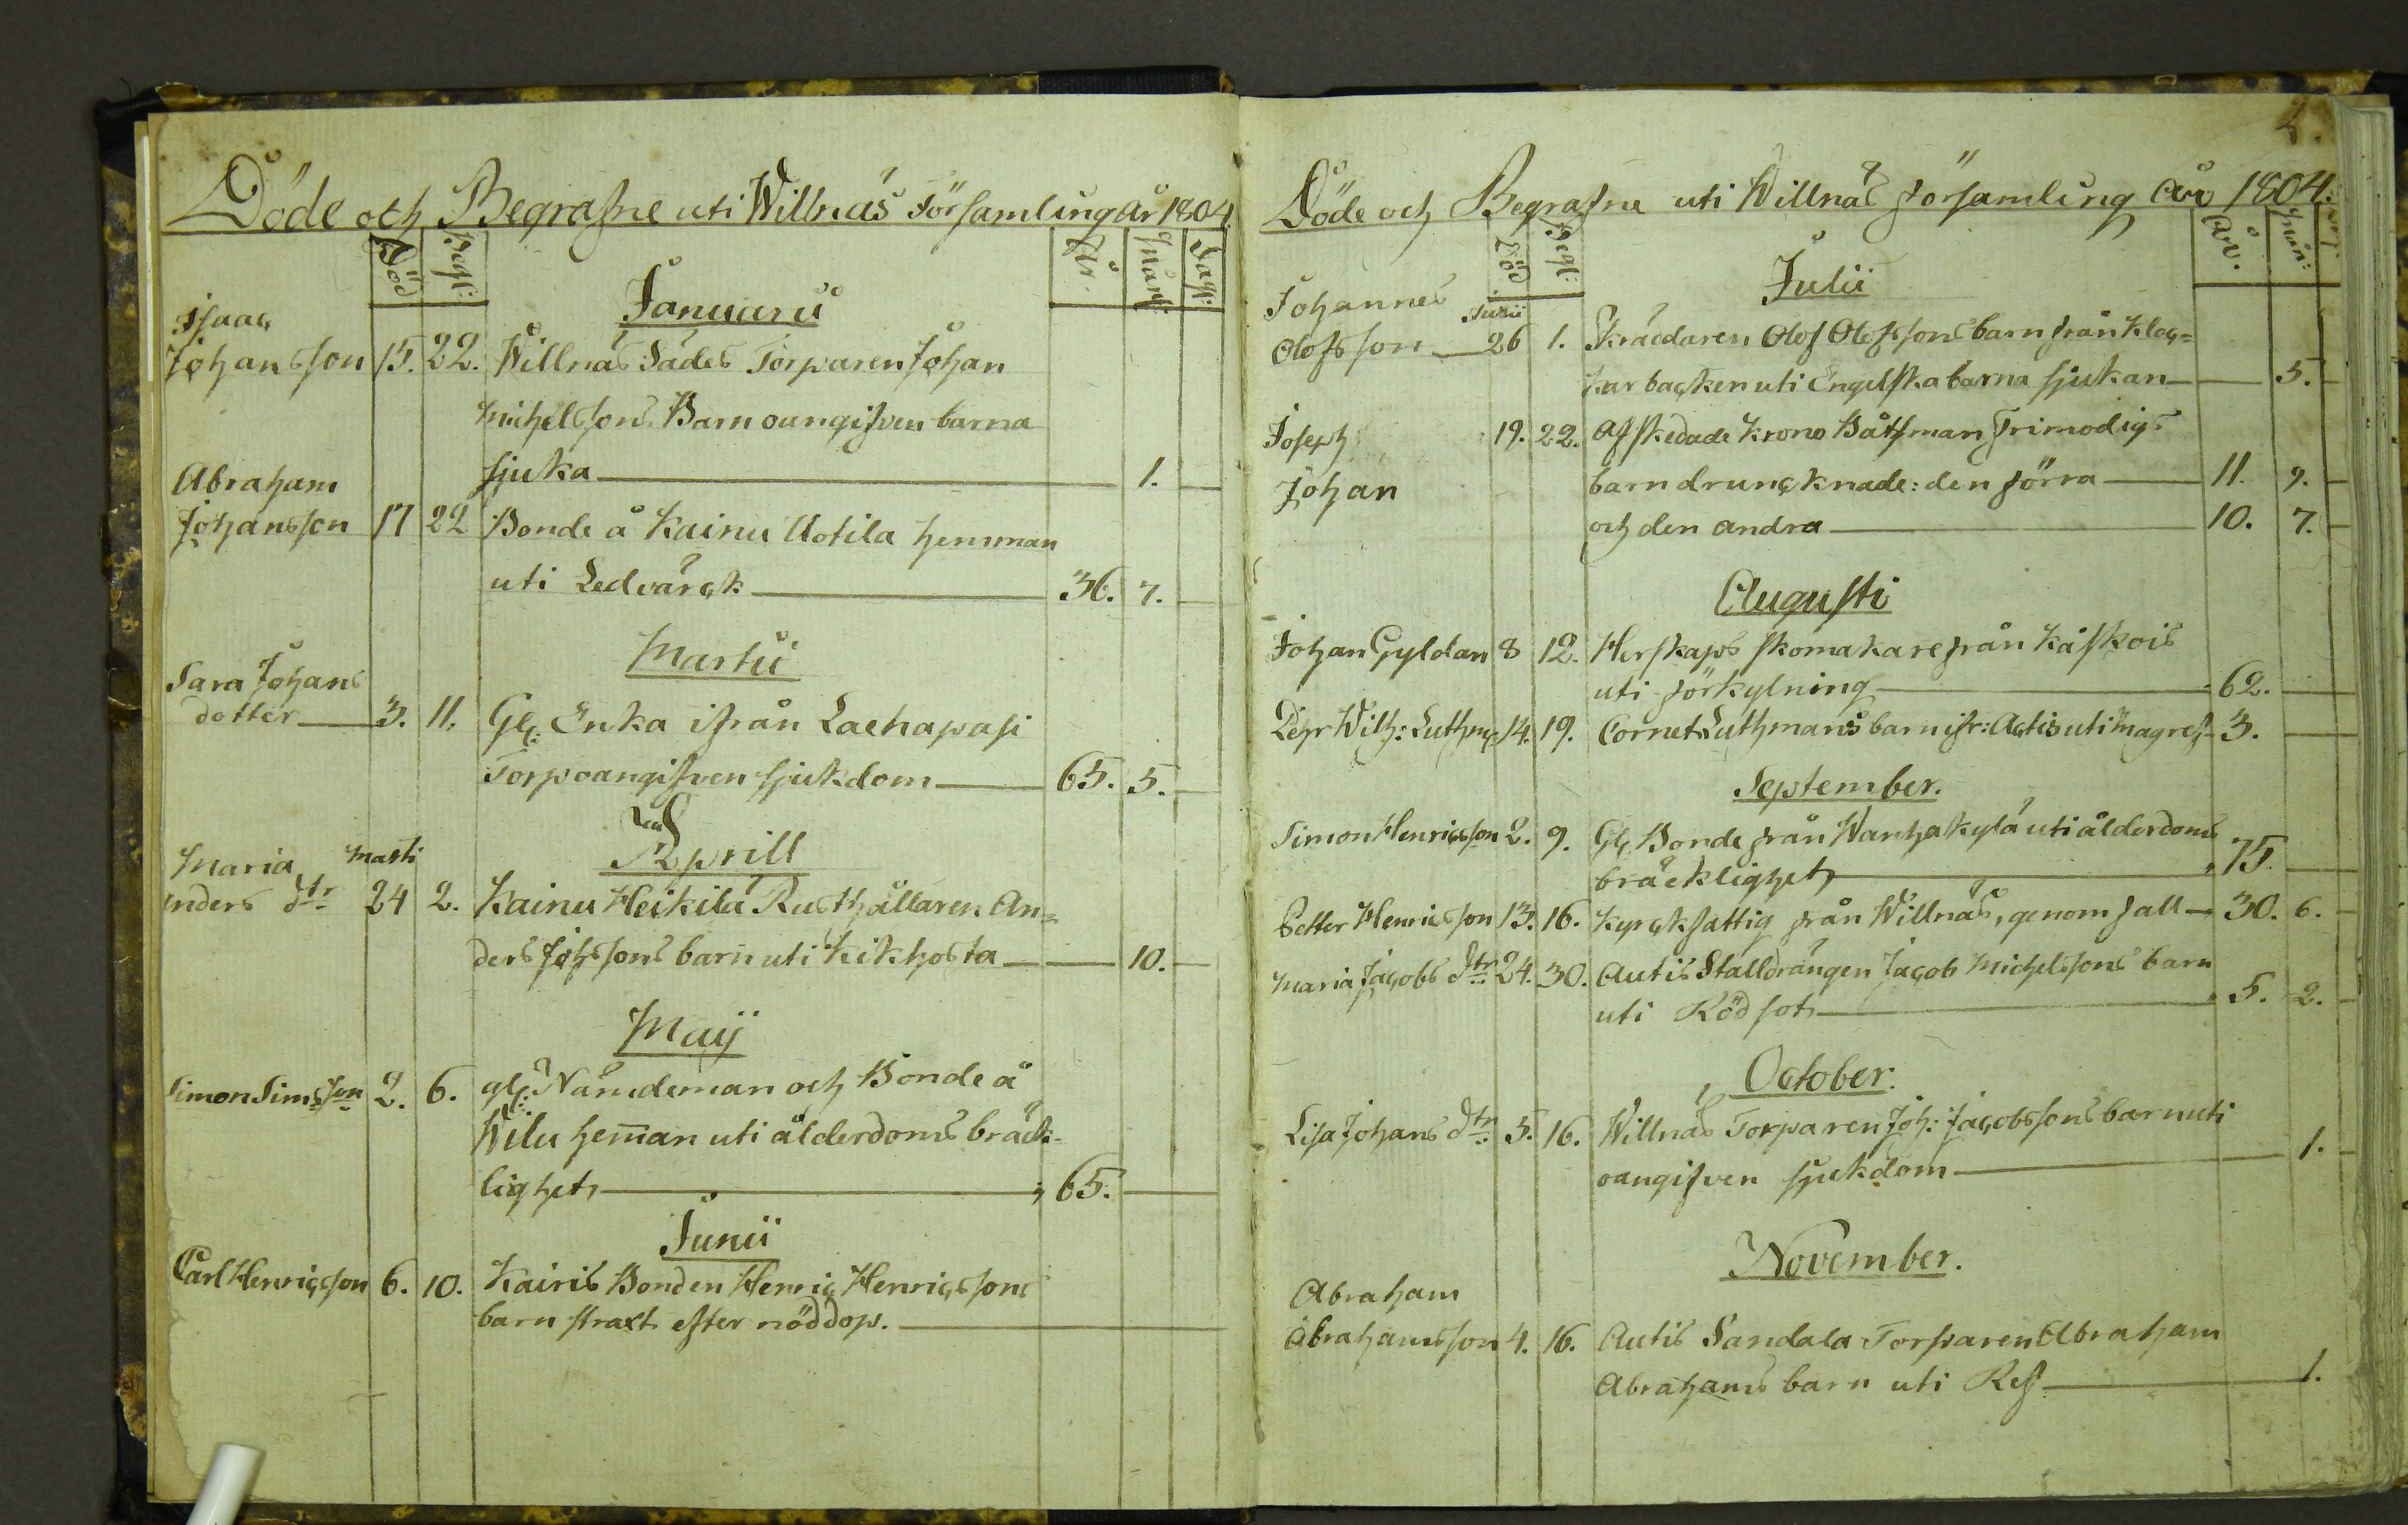 Döde och Begrafne uti Willnäs Församling År 1804.
Död Begr: År. Mån: Dag:
Januarii
Isaac
Johansson 15. 22. Willnäs Sädes Torparen Johan
Michelssons Barn oangifven barna
sjuka 1.
Abraham
Johansson 17 22 Bonde å Kainu Uotila hemman
uti Ledvärck 36. 7.
Martii
Sara Johans
dotter 3. 11. Gl: Enka ifrån Laehapasi
Torp oangifven sjukdom 65. 5.
Aprill
Maria Marti
Anders dtr 24 2. Kainu Heikilä Rusthållaren An=
ders Johssons barn uti Kikhosta 10.
Maij
Simon Simsson 2. 6. gl: Nämdeman och Bonde å
Wilu hem̄an uti ålderdoms bräck=
lighet 65.
Junii
Carl Henricsson 6. 10. Kairis Bonden Henric Henricssons
barn straxt efter nöddop.
2.
Döde och Begrafne uti Willnäs församling År 1804.
Död Begr: År. Mån:
Julii
Johannes Junii
Olofsson 26 1. Skräddaren Olof Olofssons barn från Kloc=
kar backen uti Engelska barna sjukan 5.
Joseph 19. 22. Afskedade Krono Båtsman Frimodigs
Johan barn druncknade: den förra 11. 9.
och den andra 10. 7.
Augusti
Johan Gyldan 8 12. Herskaps skomakare från Kåskois
uti förkylning 62.
Pehr Wilh: Luthm 14. 19. Cornet Luthmans barn ifr: Actis uti Magref 3.
September.
Simon Henricsson 2. 9. Gl. Bonde från Wanhakylä uti ålderdoms
bräcklighet 75.
Petter Henricsson 13. 16. Kyrckfattig från Willnäs, genom fall 30. 6.
Maria Jacobs dtr 24. 30. Autis Stalldrängen Jacob Michelssons barn
uti Rödsot 5. 2.
October.
Lisa Johans dtr 5. 16. Willnäs Torparen Joh: Jacobssons barn uti
oangifven sjukdom 1.
November.
Abraham
Abrahamsson 4. 16. Autis Sandala Torparen Abraham
Abrahams barn uti Ref 1.